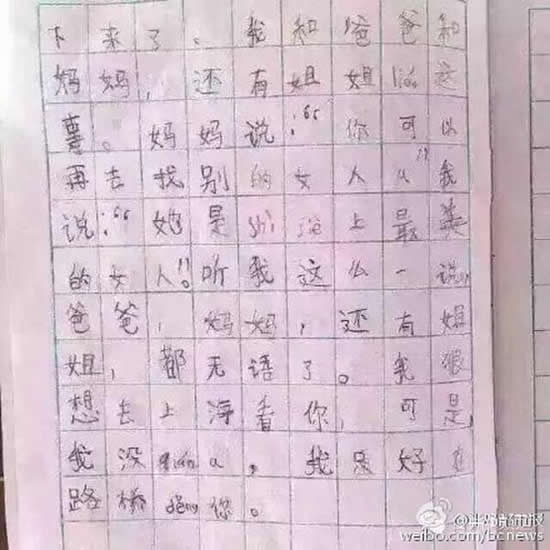 下来了。我和爸爸和
妈妈,还有姐姐liáo这
事。妈妈说:“你可以
再去找别的女人a”我
说:“她是shì 上最美
的女人”!听我这么一说,
爸爸,妈妈,还有姐
姐,都无语了。我狠
想去上海看你,可是,
我没qián a,我只好在
路桥děng你。
weibo.com/bcnews